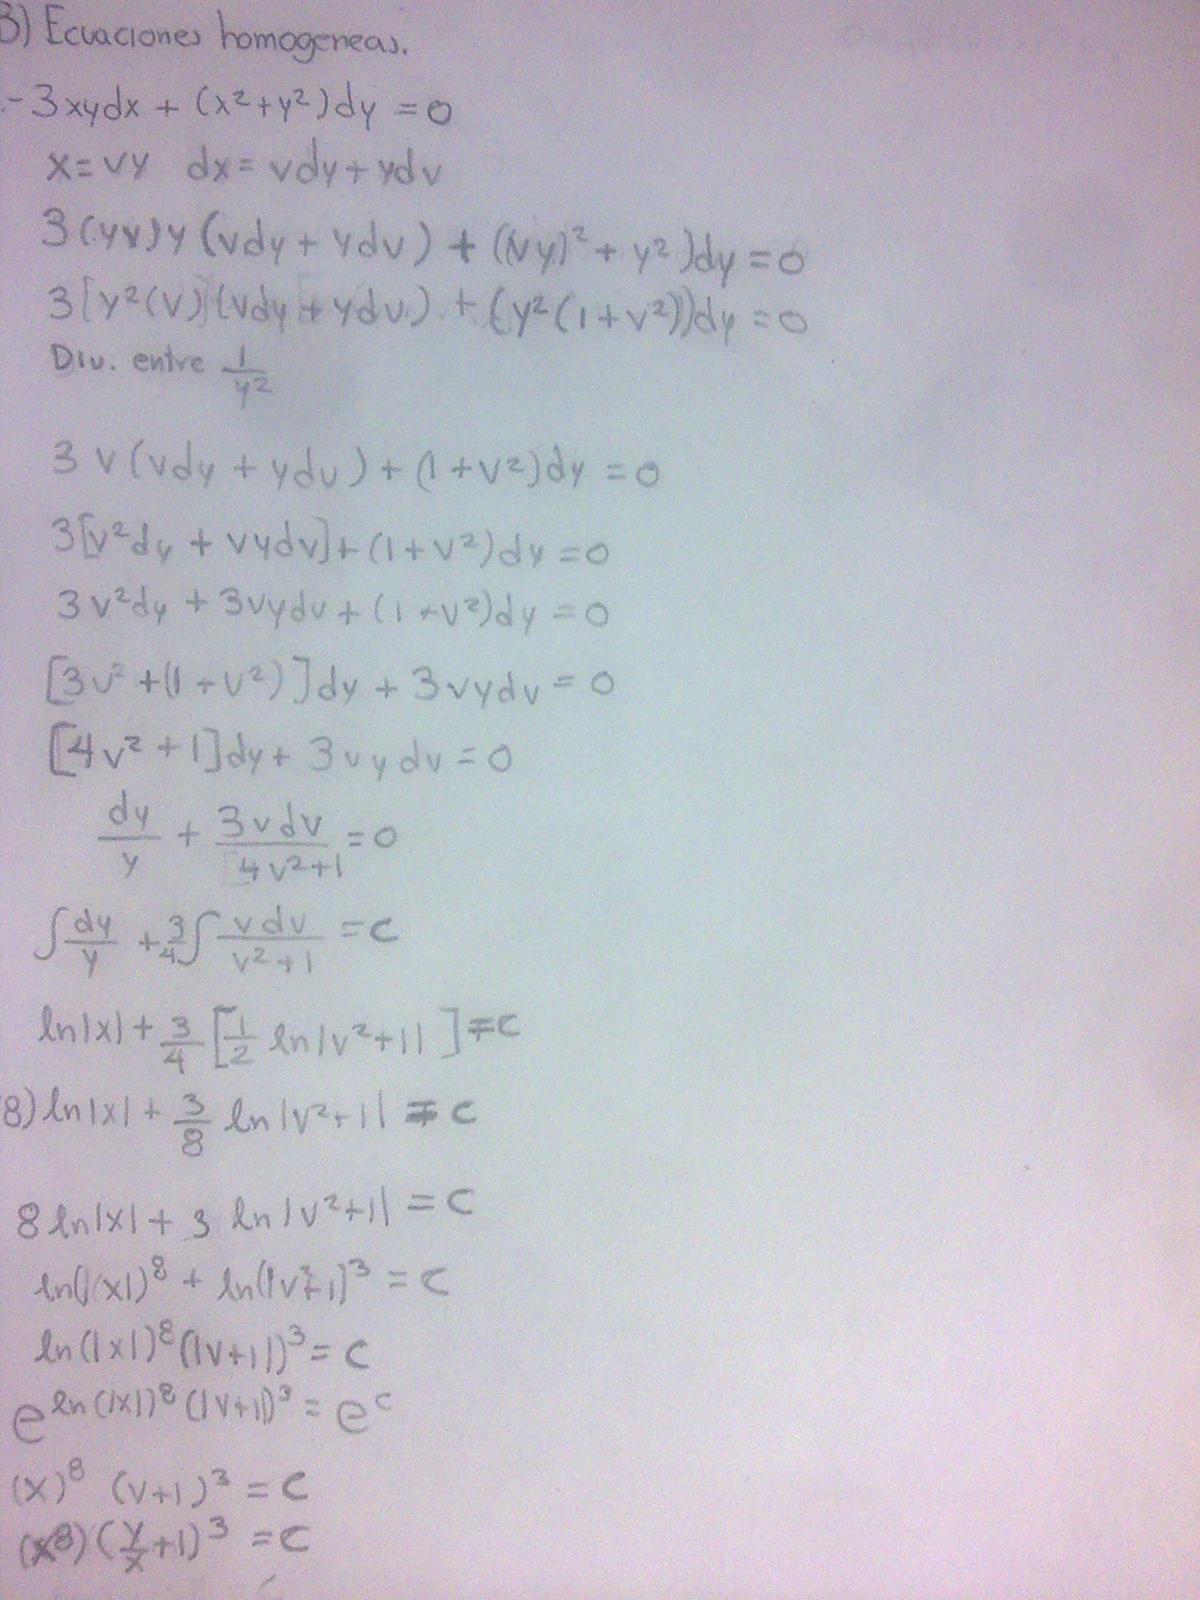 3) Ecuaciones homogeneas.
.- 3xydx + (x²+y²)dy = 0
x=vy dx= vdy+ydv
3(yv)y(vdy+ydv) + ((vy)²+y²)dy=0
3[y²(v)](vdy+ydv) + (y²(1+v²))dy=0
Div. entre 1/y²
3v(vdy+ydv)+(1+v²)dy=0
3[v²dy + vydv]+(1+v²)dy=0
3v²dy + 3vydv+(1+v²)dy=0
[3v²+(1+v²)]dy + 3vydv=0
[4v²+1]dy+ 3vydv=0
dy/y + 3vdv/4v²+1 =0
∫dy/y + 3/4∫ vdv/v²+1 =c
ln|x|+ 3/4 [1/2 ln|v²+1|]=c
8) ln|x| + 3/8 ln|v²+1| = c
8 ln|x| + 3 ln|v²+1| = c
ln(|x|)⁸ + ln(|v²+1|)³ = c
ln(|x|)⁸(|v+1|)³= c
e^ln(|x|)⁸(|v+1|)³ = e^c
(x)⁸ (v+1)³ = c
(x⁸)(y/x+1)³ = c